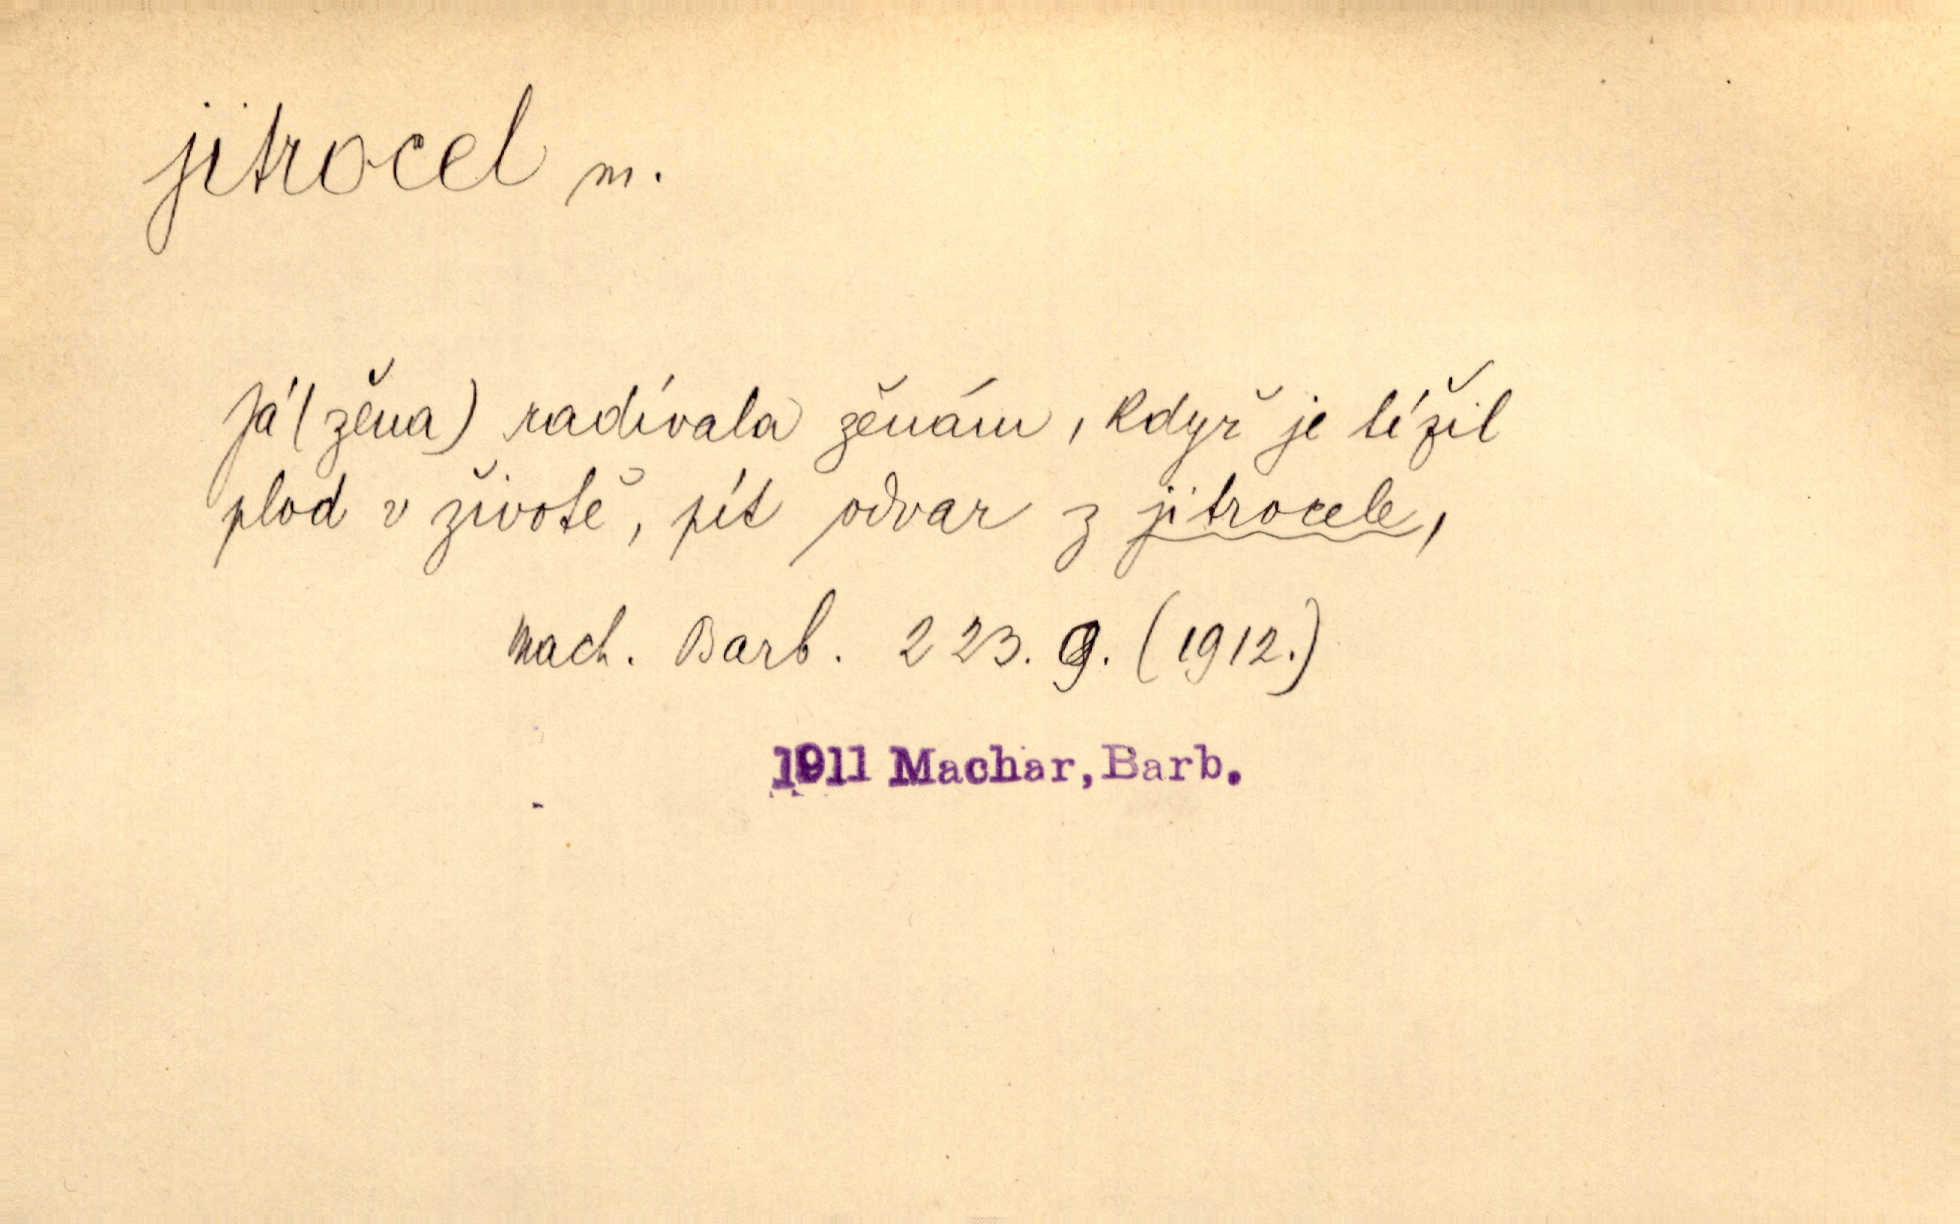 jitrocel m.
Já (žena) radívala ženám, když je tížil
plod v životě, pít odvar z jitrocele,
Mach. Barb. 223. 9. (1912.)
1911 Machar, Barb.